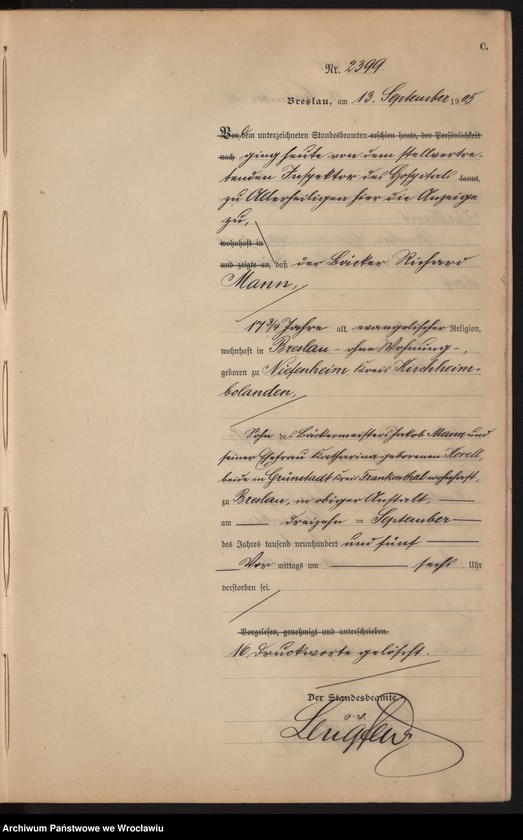 C.
Nr. 2399.
Breslau, am 13. September 1905
Vor dem unterzeichneten Standesbeamten erschien heute, der Persönlichkeit
nach ging heute von dem stellvertre-
tenden Inspektor des Hospitals kannt,
zu Allerheiligen hier die Anzeige
zu,
wohnhaft in
und zeigte an, daß der Bäcker Richard
Mann,
17 3/4 Jahre alt, evangelischer Religion,
wohnhaft in Breslau - ohne Wohnung -,
geboren zu Niefenheim Kreis Kirchheim-
bolanden,
Sohn des Bäckermeisters Jakob Mann und
seiner Ehefrau Katharina geborenen
beide in Grünstadt Kreis Frankenthal wohnhaft,
zu Breslau, in obiger Anstalt,
am dreizehn im September
des Jahres tausend neunhundert und fünf
Vor mittags um sechs Uhr
verstorben sei.
Vorgelesen, genehmigt und unterschrieben.
16 Druckworte gelöscht.
Der Standesbeamte.
Archiwum Państwowe we Wrocławiu